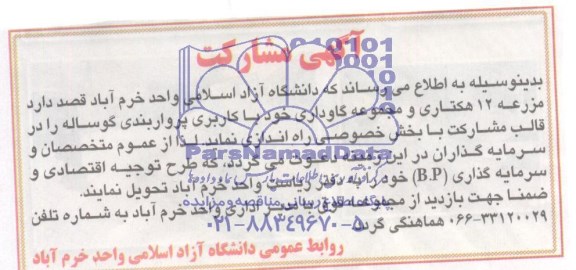 آگهی مشارکت
بدینوسیله به اطلاع می رساند که دانشگاه آزاد اسلامی واحد خرم آباد قصد دارد
مزرعه ۱۲ هکتاری و مجموعه گاوداری خود با کاربری پرواربندی گوساله را در
قالب مشارکت با بخش خصوصی راه اندازی نماید لذا از عموم متخصصان و
سرمایه گذاران در این زمینه دعوت می گردد، که طرح توجیه اقتصادی و
سرمایه گذاری (B.P) خود را به دفتر ریاست واحد خرم آباد تحویل نمایند.
ضمنا جهت بازدید از مجموعه فوق با مدیر اداری واحد خرم آباد به شماره تلفن
۰۶۶-۳۳۱۲۰۰۲۹ هماهنگی گردد.
روابط عمومی دانشگاه آزاد اسلامی واحد خرم آباد
ParsNamadData
۰۲۱-۸۸۳۴۹۶۷۰-۵